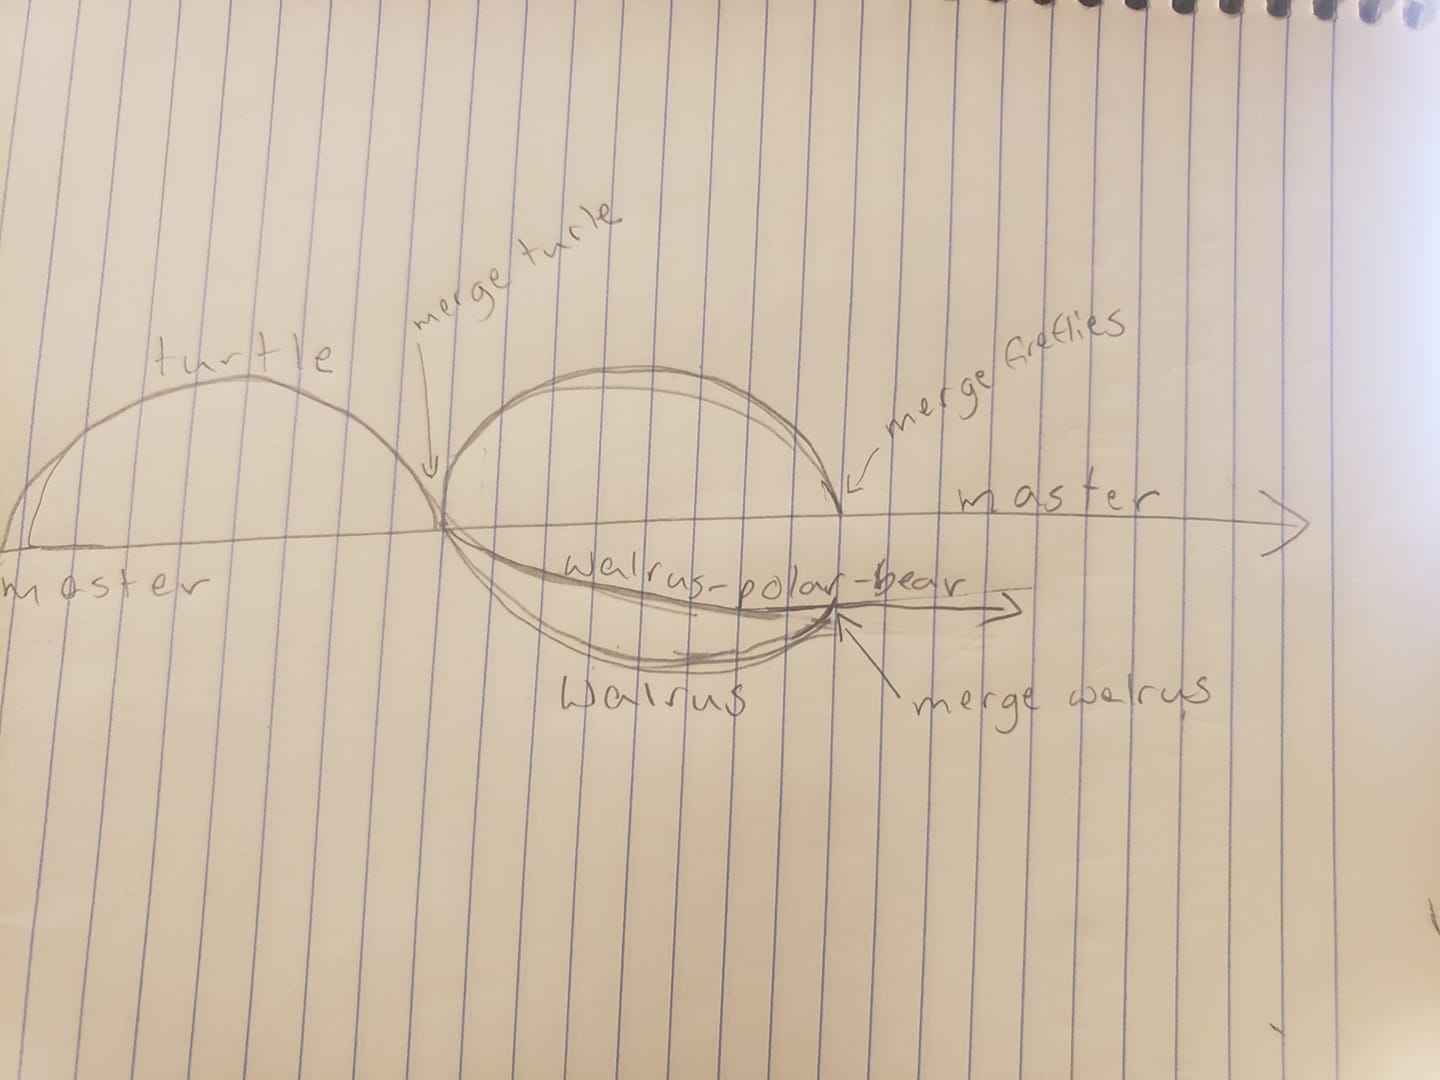 merge turle
turtle
merge fireflies
master
master
walrus-polar-bear
Walrus
merge walrus